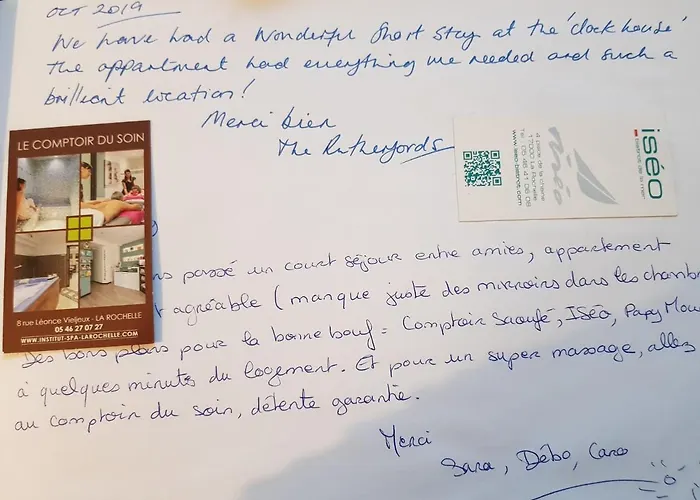 OCT 2019
We have had a wonderful short stay at the 'clock house'
The appartment had everything we needed and such a
brilliant location!
Merci bien
The Rutherfords
LE COMPTOIR DU SOIN
8 rue Léonce Vieljeux - LA ROCHELLE
05 46 27 07 27
WWW.INSTITUT-SPA-LAROCHELLE.COM
iséo
bistrot de la mer
iséo
17000 La Rochelle
www.iseo-bistrot.com
passé un court séjour entre amies, appartement
agréable (manque juste des mirroirs dans les chambr
Des bons plans pour la bonne bouf = Comptoir Saoufé, ISéo, Papy Mou
à quelques minutes du logement. Et pour un super massage, allez
au comptoir du soin, détente garantie.
Merci
Sara, Débo, Caro